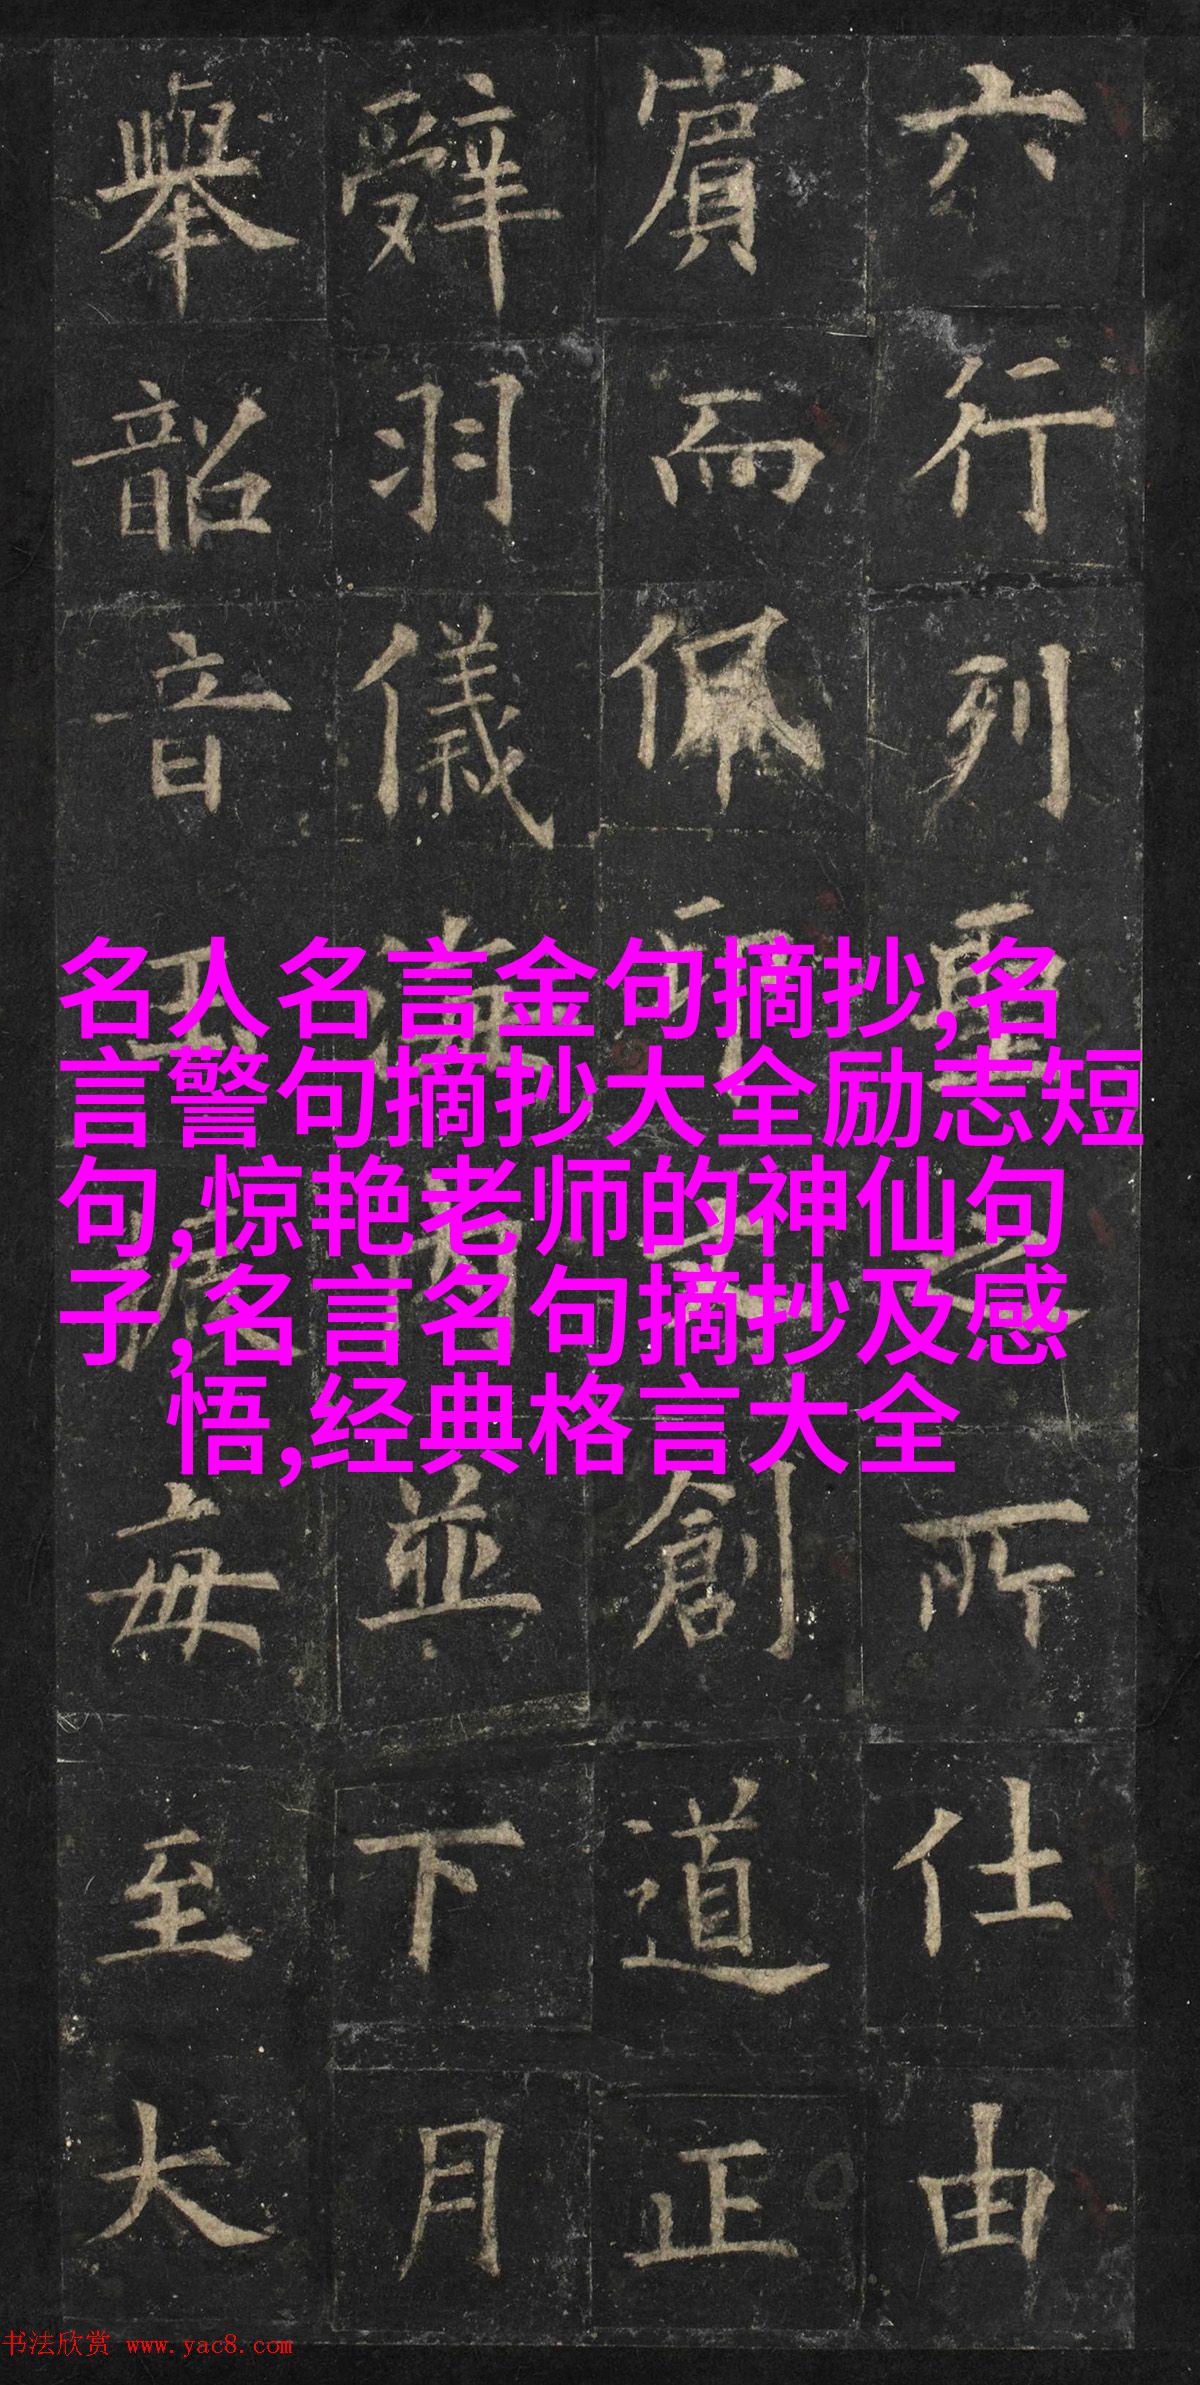 六行列聖之所仕由
賓而佩創道正
辭羽儀海内並下月
舉韶音每至大
名人名言金句摘抄,名
言警句摘抄大全励志短
句,惊艳老师的神仙句
子,名言名句摘抄及感
悟,经典格言大全
书法欣赏 www.yac8.com